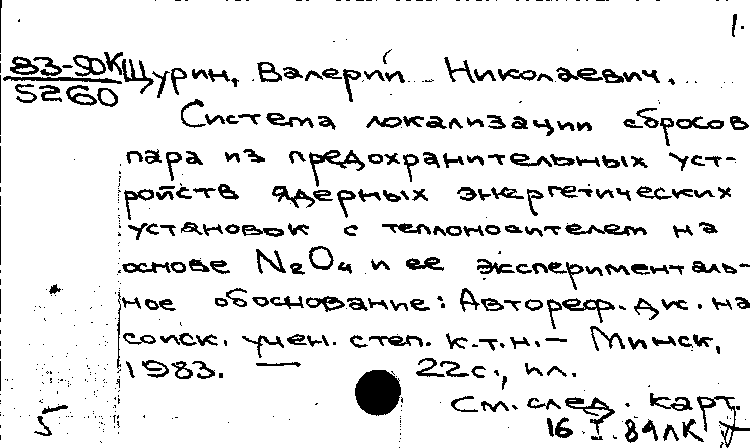 1.
83-50К
5260
Шурин, Валерий Николаевич.
Система локализации сбросов
пара из предохранительных уст-
ройств ядерных энергетических
установок с теплоносителем на
основе N₂O₄ и ее эксперименталь-
ное обоснование: Автореф. дис. на
соиск. учен. степ. к.т.н. – Минск,
1983. — 22с., ил.
См. след. карт.
5
16.I.84 ЛК